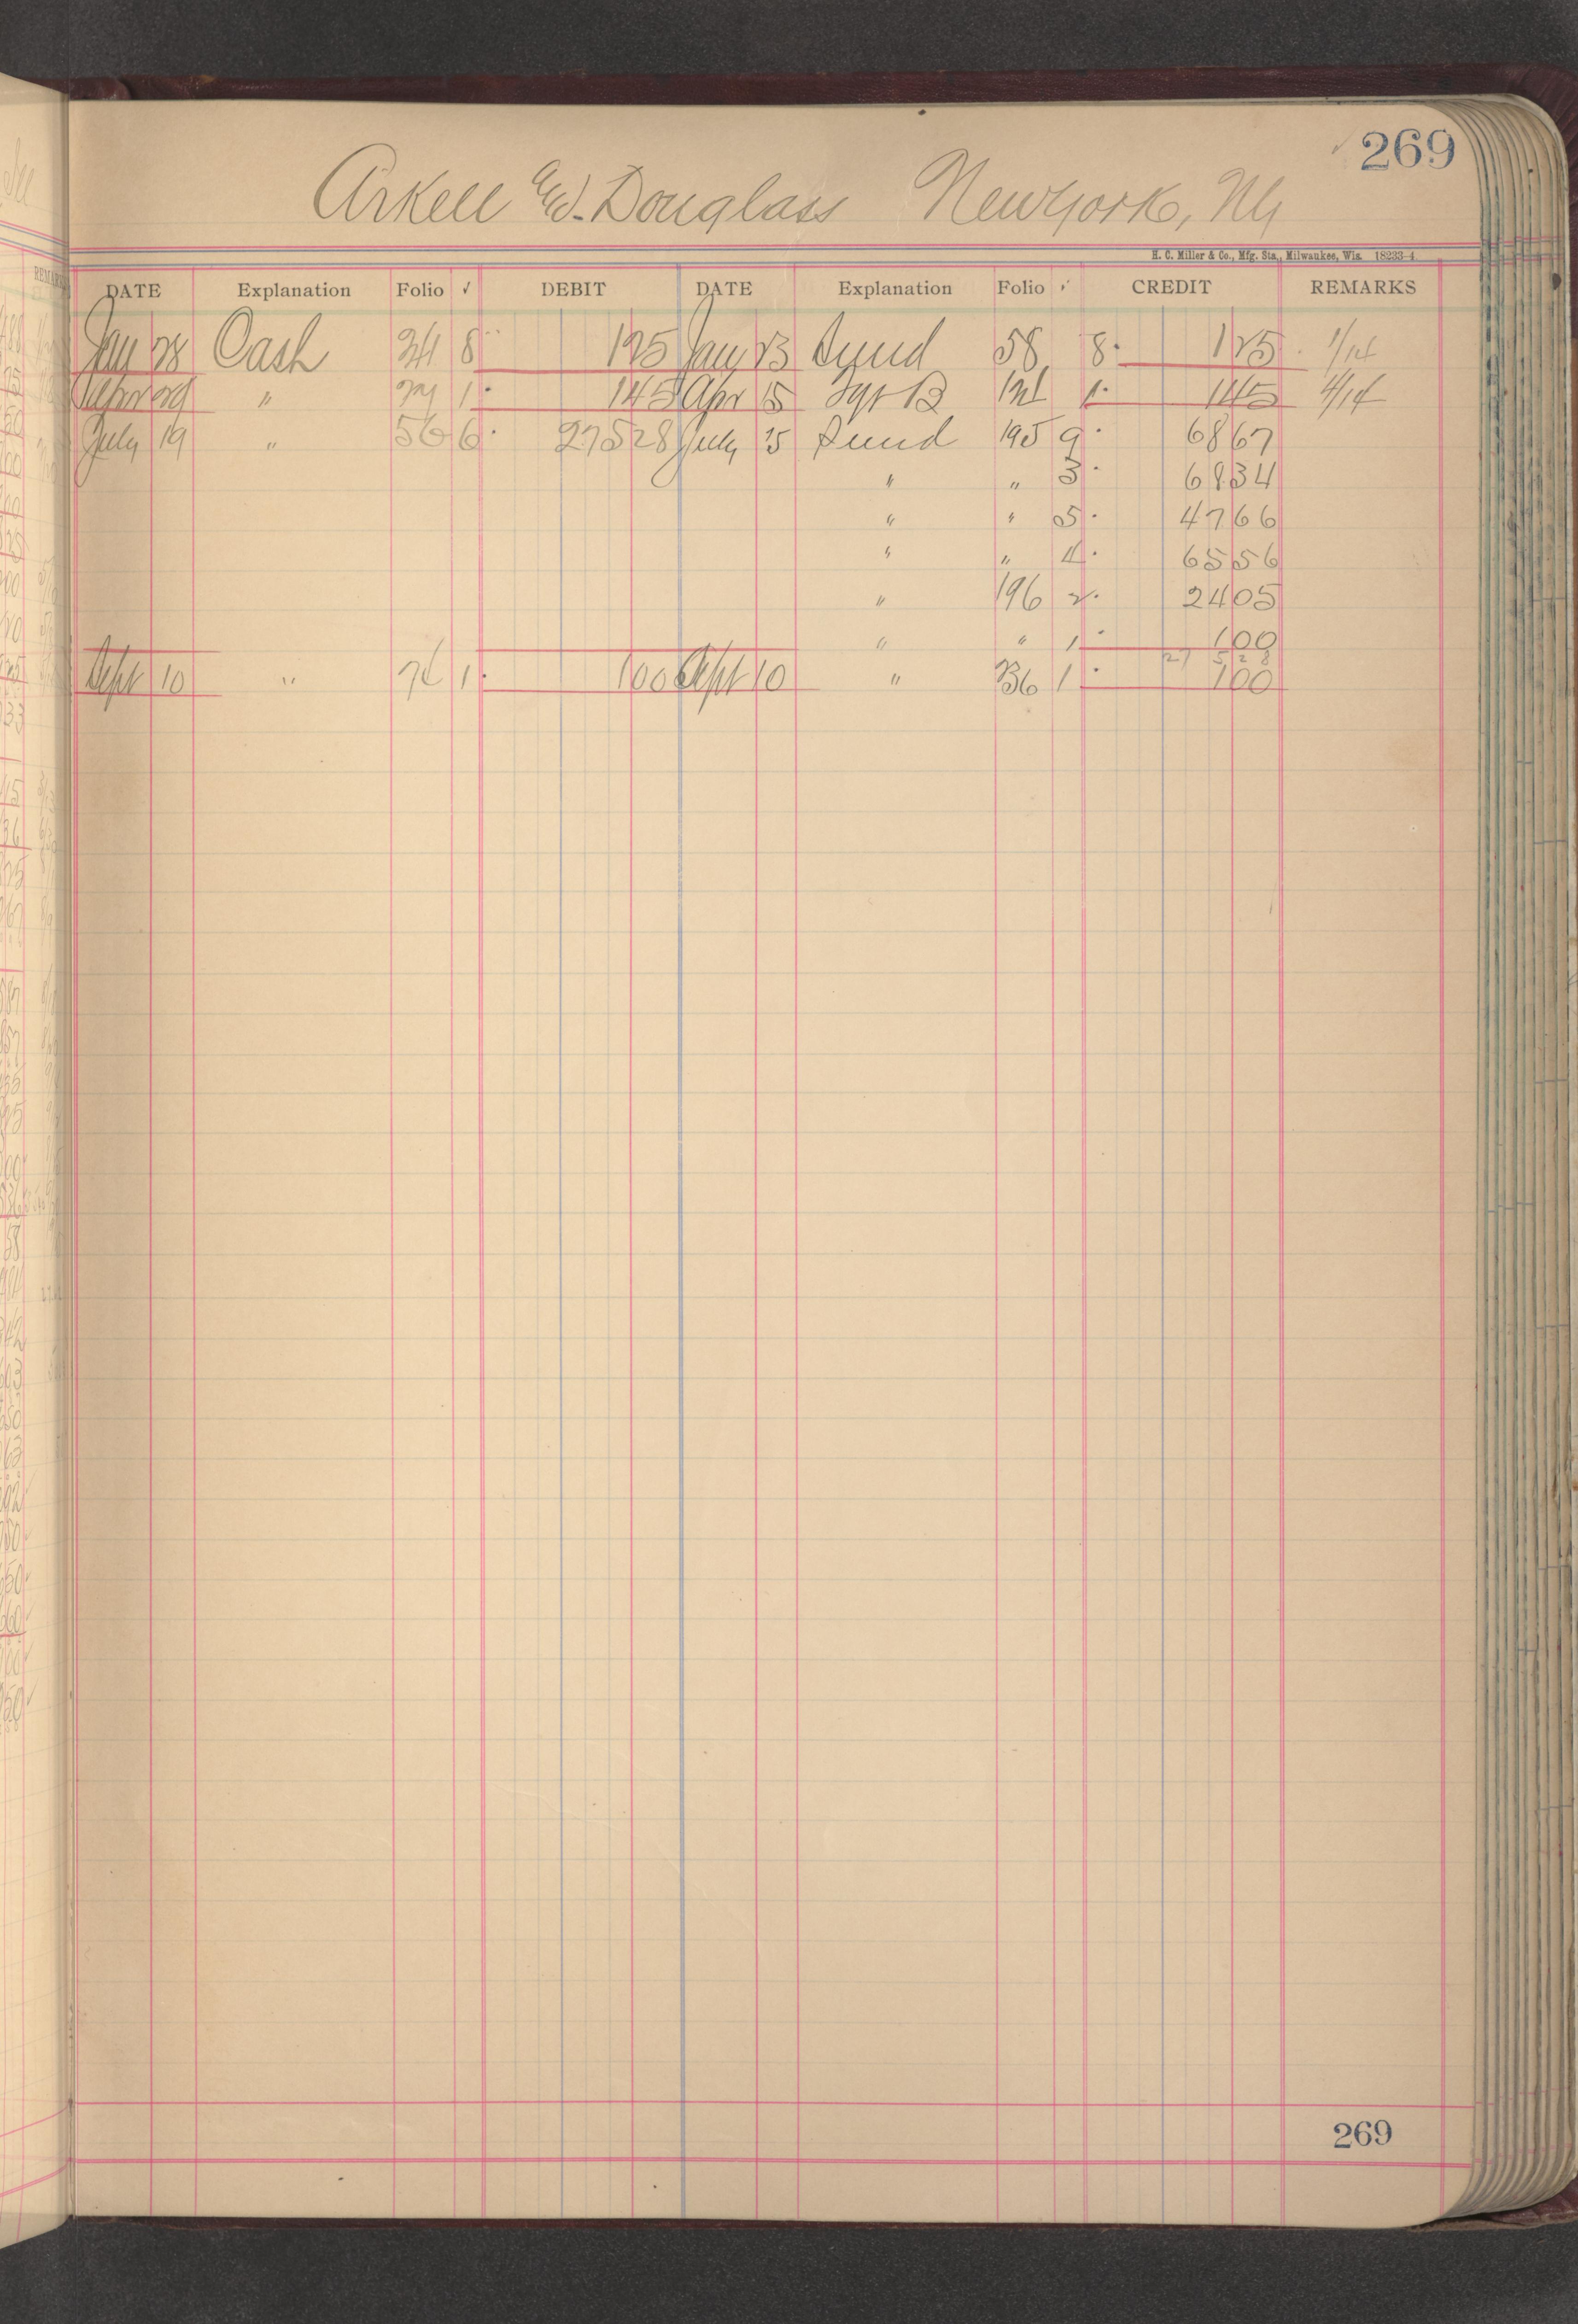 269
Arkell and Douglass New York, Ny
H. C. Miller & Co., Mfg. Sta., Milwaukee, Wis. 18233-4.
DATE Explanation Folio ✓ DEBIT DATE Explanation Folio ✓ CREDIT REMARKS
Jan 28 Cash 341 8 1 25 Jan 23 Sund 58 8 1 25 1/14
Apr 29 " 1 1 45 Apr 15 B 121 1 1 45 4/14
July 19 " 566 275 28 July 15 Sund 195 9 68 67
" " 3 68 34
" " 5 47 66
" " 4 65 56
" 196 2 24 05
" " 1 1 00
27 5 2 8
Sept 10 " 76 1 1 00 Sept 10 " 236 1 1 00
269